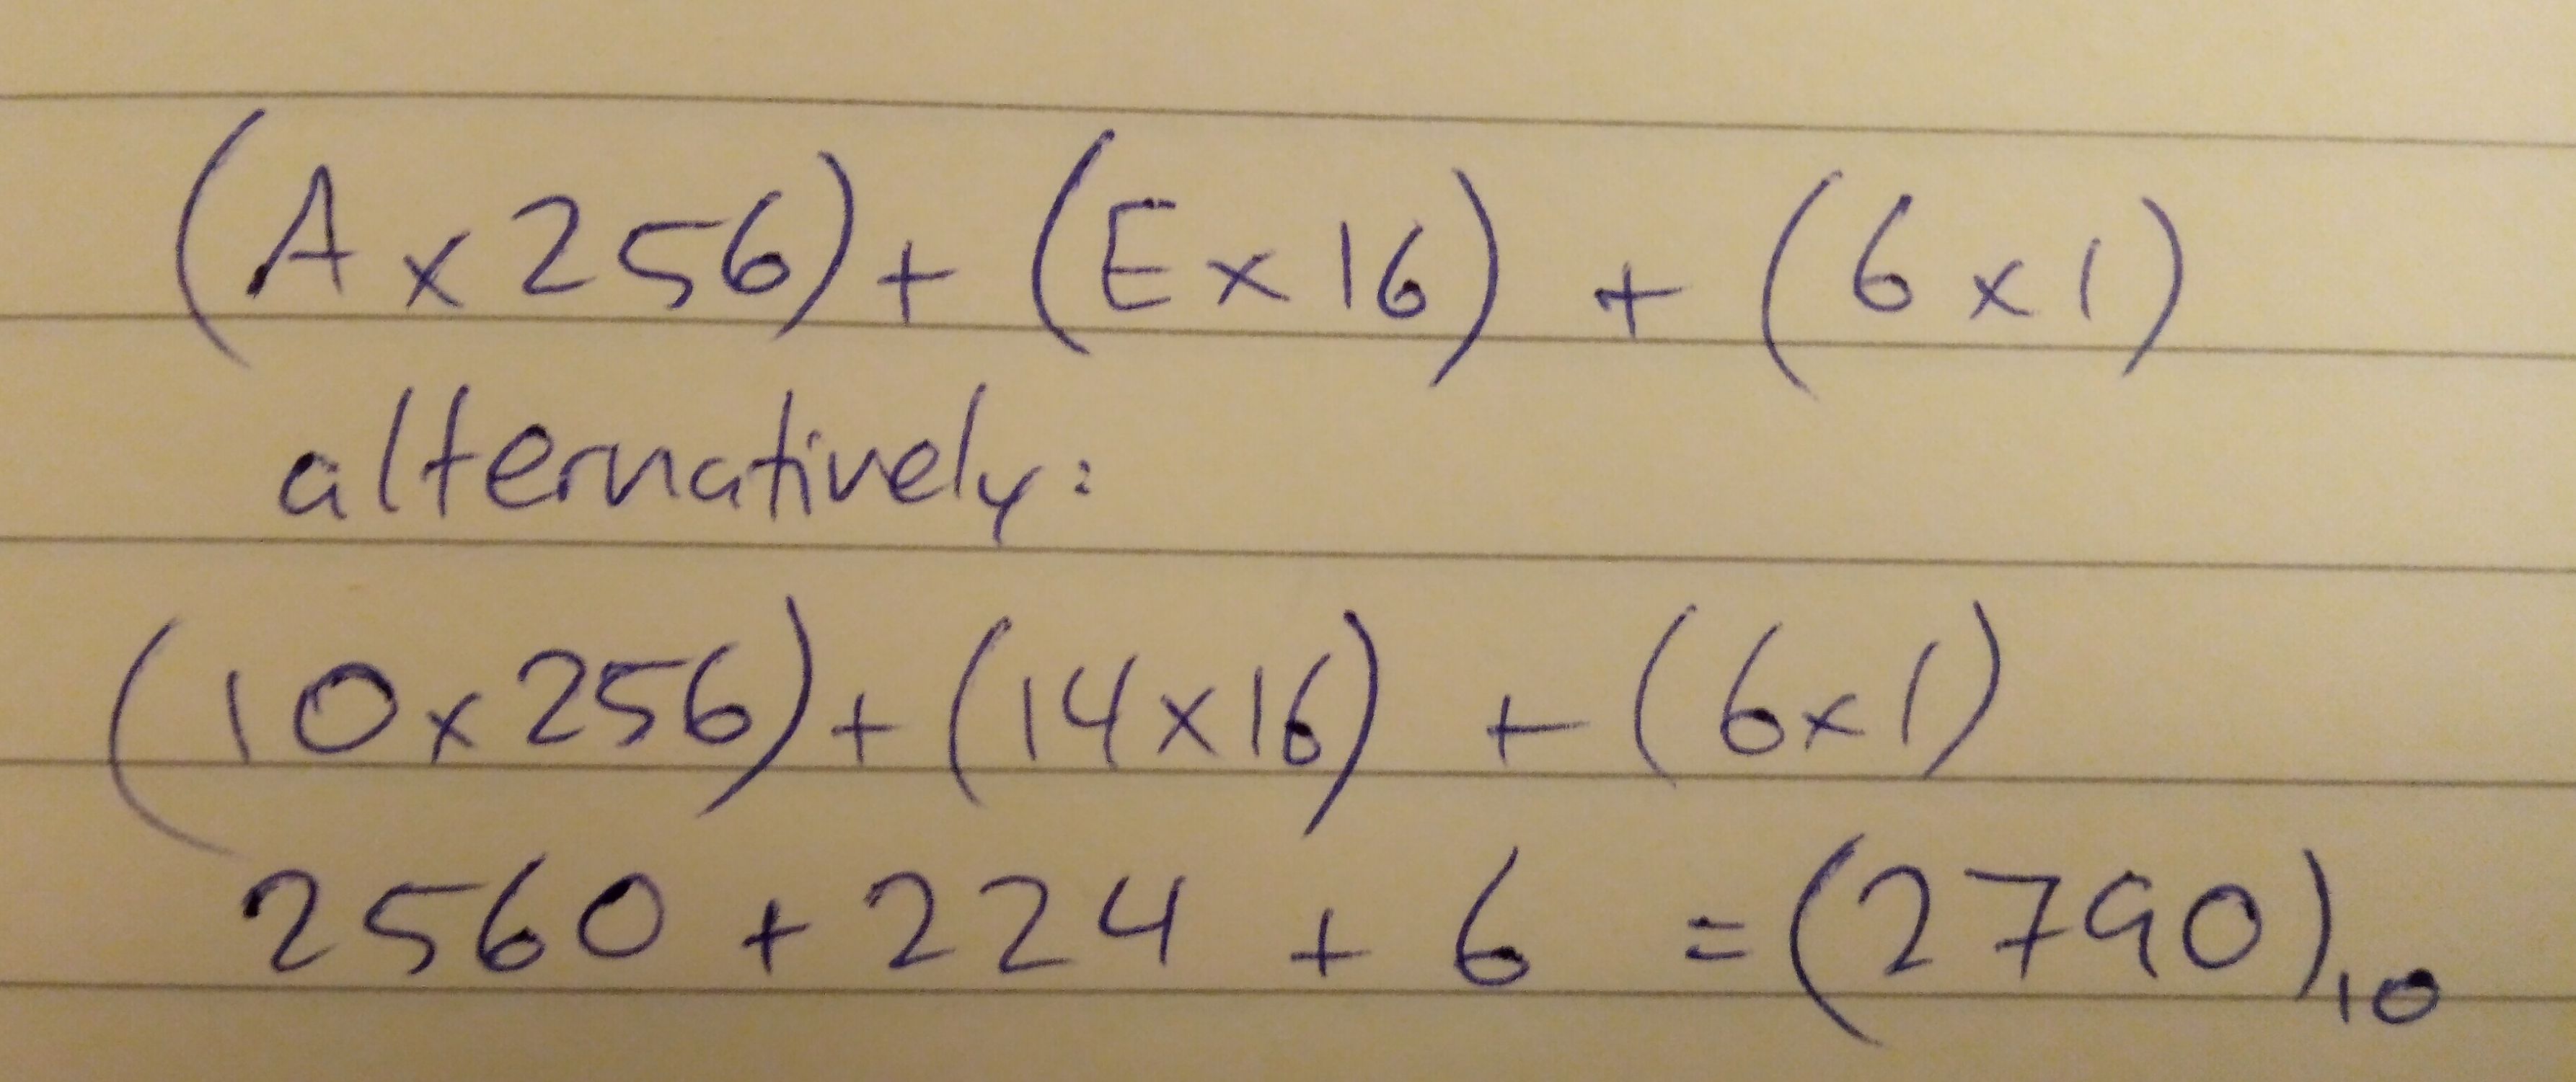 (A x 256) + (E x 16) + (6 x 1)
alternatively:
(10 x 256) + (14 x 16) + (6 x 1)
2560 + 224 + 6 = (2790)₁₀